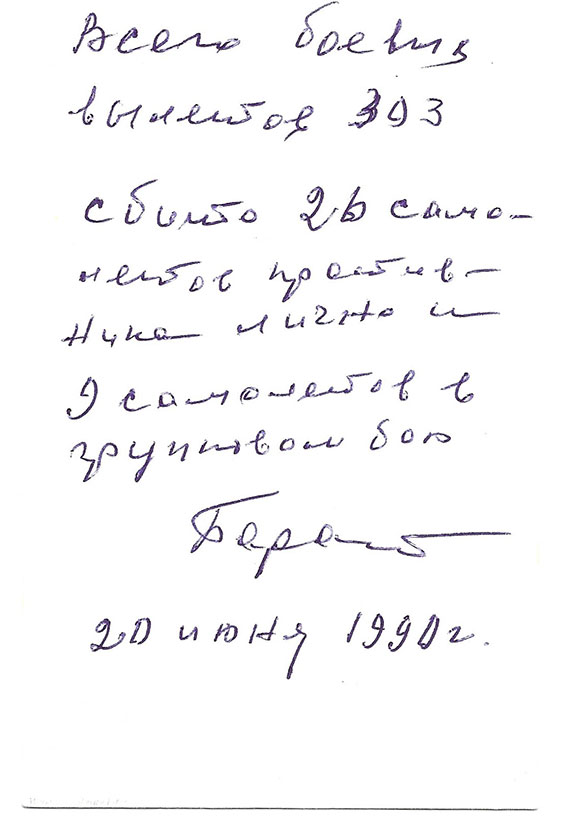 Всего боевых
вылетов 303
сбито 26 само-
летов против-
ника лично и
9 самолетов в
групповом бою
20 июня 1990 г.